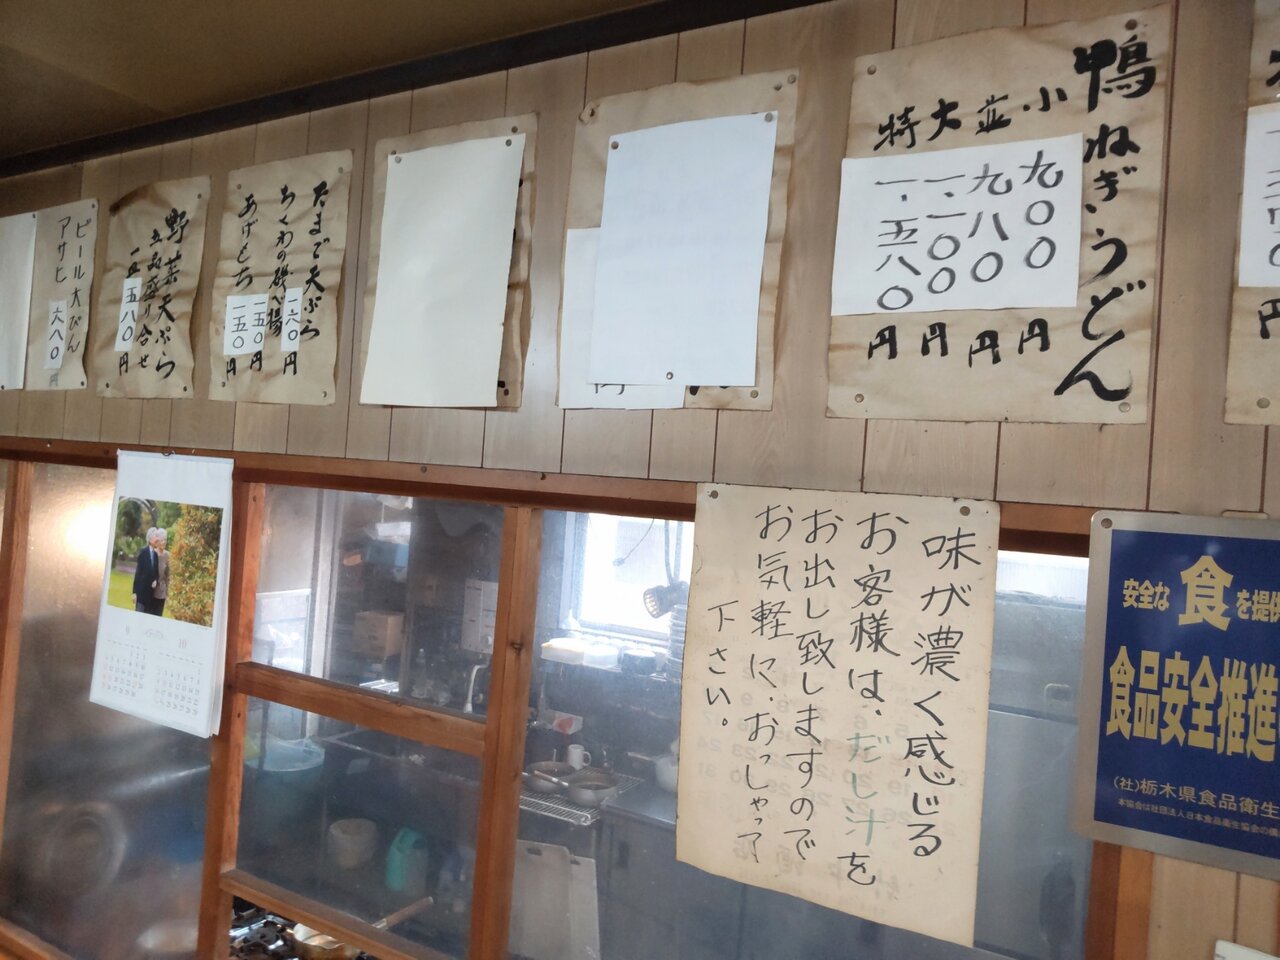 鴨ねぎうどん
小 九〇〇円
並 九八〇円
大 一.一〇〇円
特 一.五八〇円
たまご天ぷら 一六〇円
ちくわの磯べ揚 一五〇円
あげもち 一五〇円
野菜天ぷら
五品盛り合せ
一皿 五八〇円
ビール大びん
アサヒ 六八〇円
味が濃く感じる
お客様は、だし汁を
お出し致しますので
お気軽に、おっしゃって
下さい。
安全な食を提供
食品安全推進
(社)栃木県食品衛生
本協会は社団法人日本食品衛生協会の
9 10